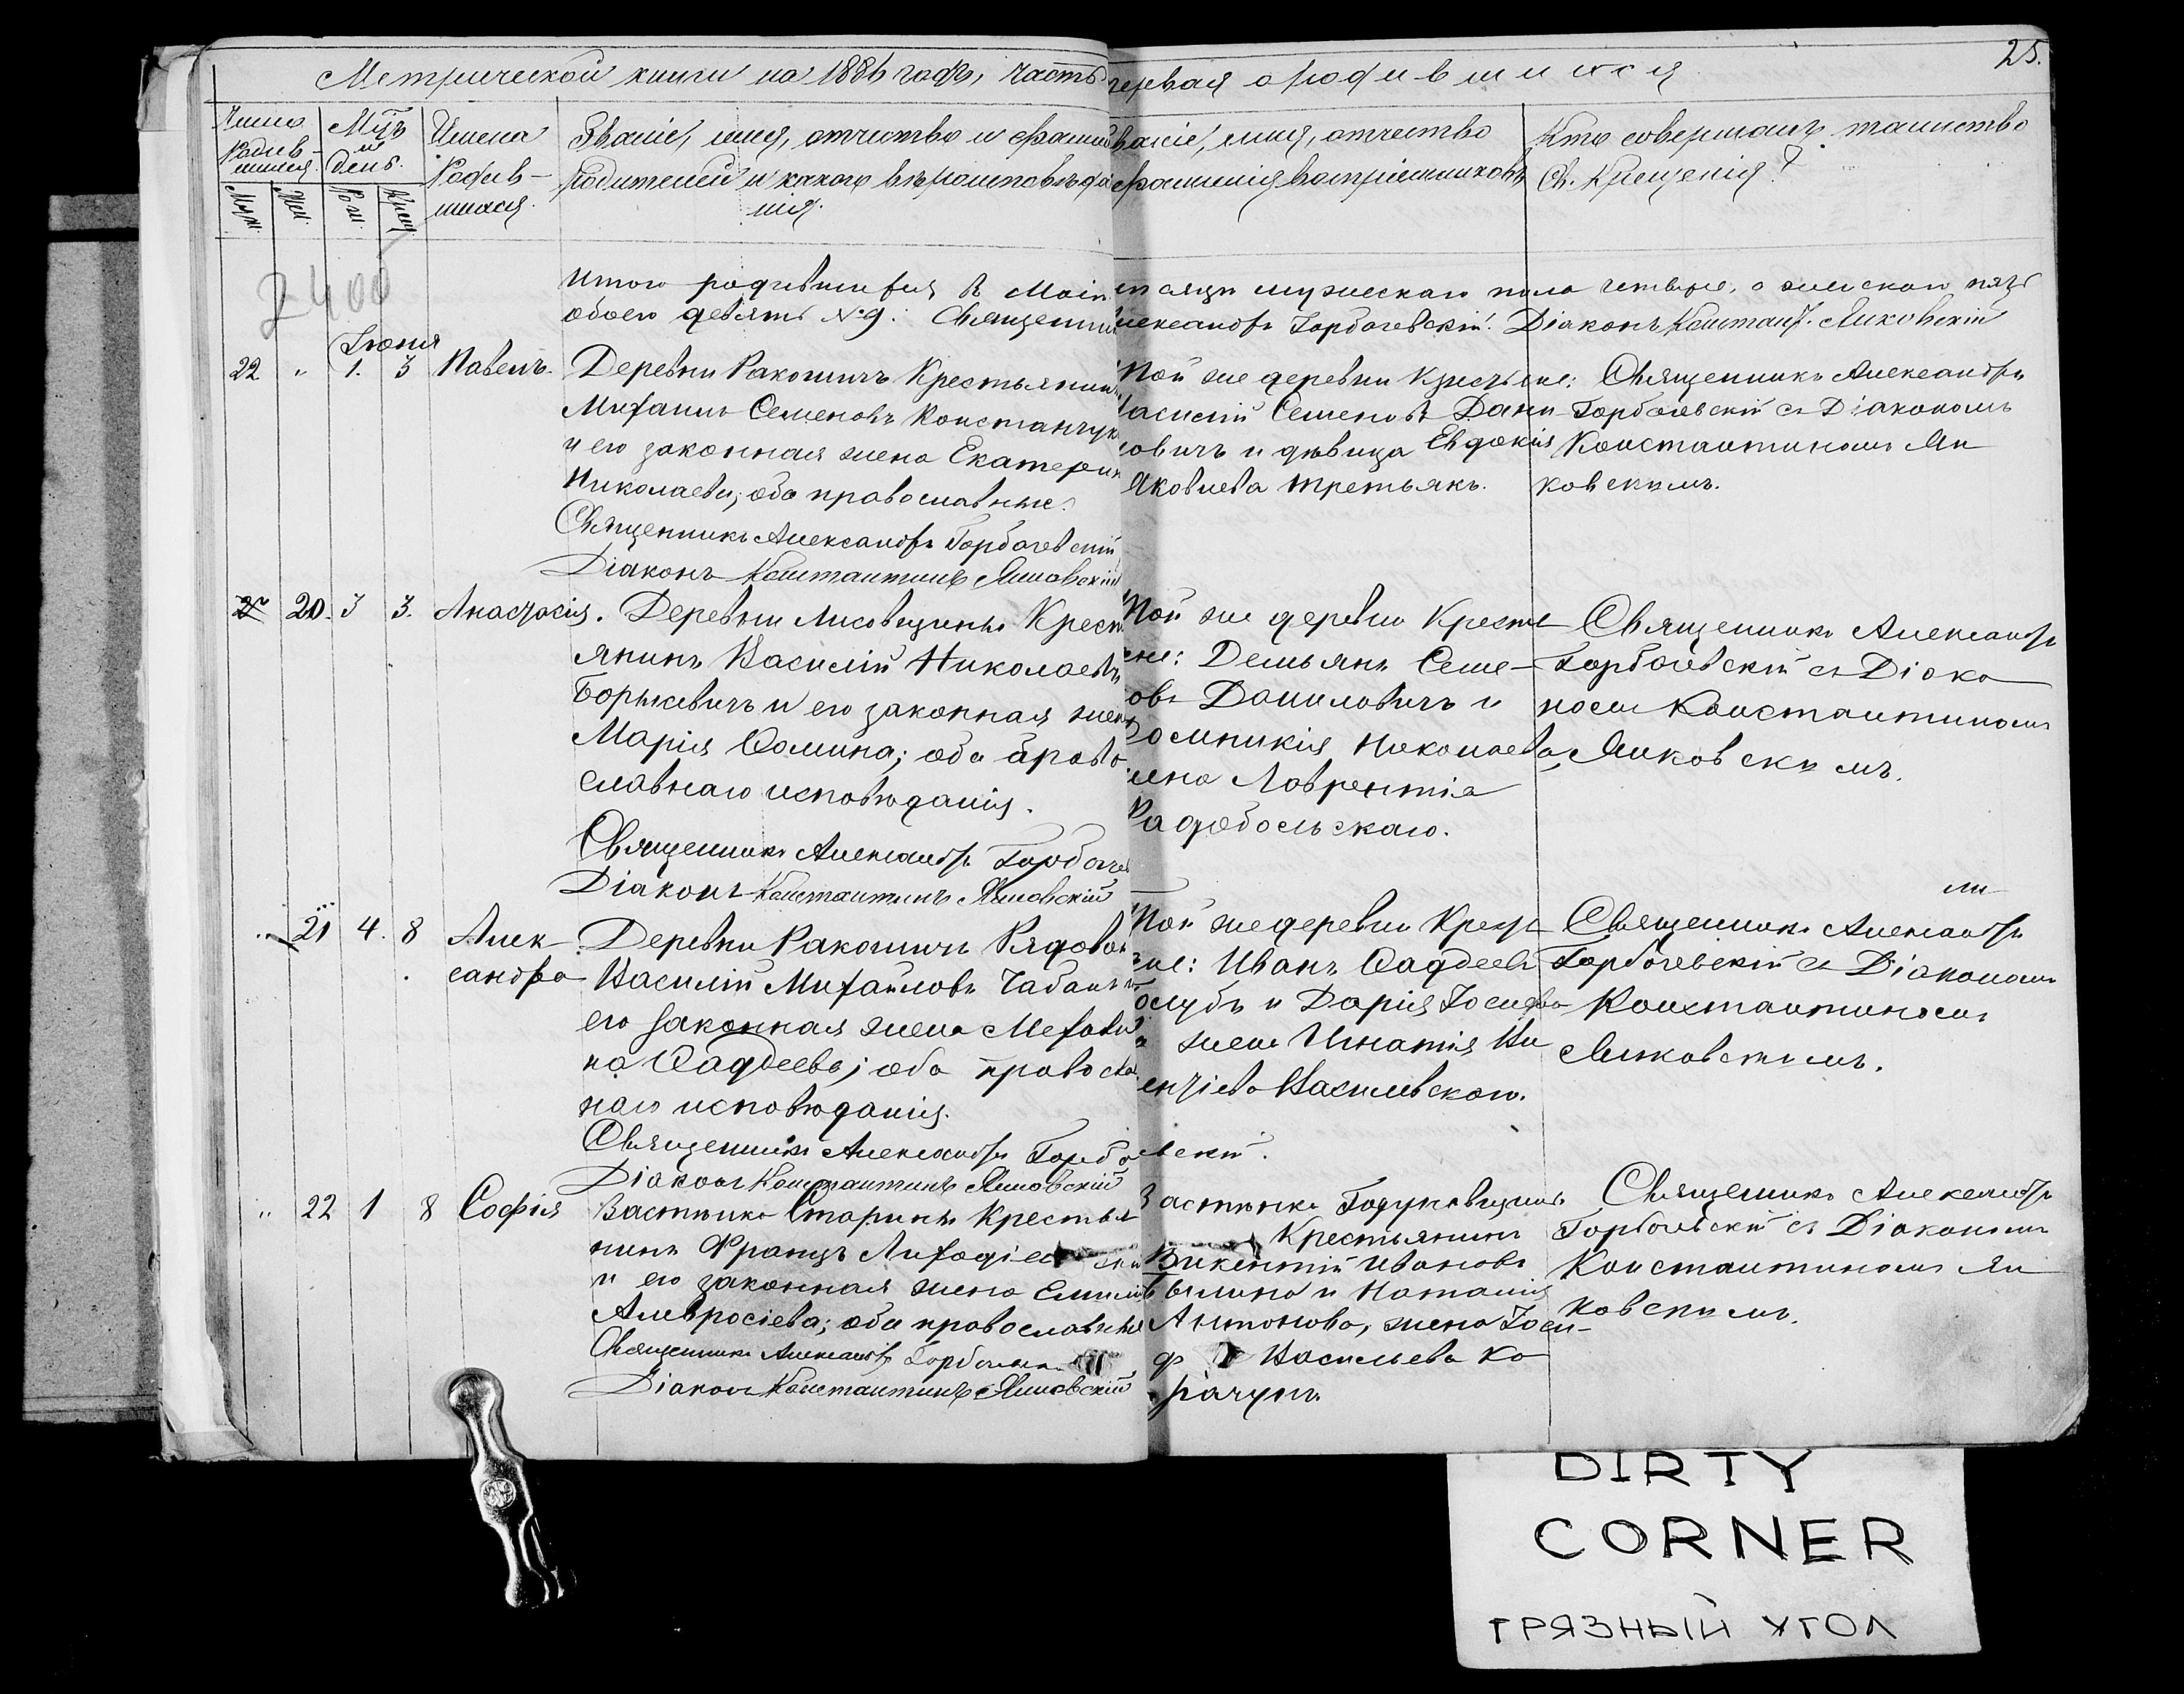 25.
Метрической книги на 1886 годъ, часть первая о родившихся
Число родив-шихся.
Муж.
Жен.
Мцъ и день.
Рож.
Крещ.
Имена Родив-шихся.
Званіе, имя, отчество и фамил
Родителей и какого вѣроисповѣда
нія.
Званіе, имя, отчество
фамилія воспріемниковъ
Кто совершалъ таинство
Св. Крещенія?
2400
Итого родившихся въ Маіи мѣсяцѣ мужескаго пола четыре, а женскаго пять
обоего девять №9. Священникъ Александръ Горбачевскій. Діаконъ Констант. Янковскій
Іюня
22 " 1. 3 Павелъ.
Деревни Ракошичъ Крестьянинъ
Михаилъ Семеновъ Константук
и его законная жена Екатерин
Николаева; оба православные.
Священникъ Александръ Горбачевскій
Діаконъ Константинъ Янковскій
Той же деревни Крестьяне:
Василій Семеновъ Дани
ловичъ и дѣвица Евдокія
Яковлева Третьякъ.
Священникъ Александръ
Горбачевскій съ Діакономъ
Константиномъ Ян
ковскимъ.
20. 3 3. Анастасія.
Деревни Лисовщины Крест
янинъ Василій Николаевъ
Борысевичъ и его законная жена
Марія Ѳомина; оба право
славнаго исповѣданія.
Священникъ Александръ Горбачев
Діаконъ Константинъ Янковскій
Той же деревни Кресть
яне: Демьянъ Семе-
овъ Даниловичъ и
Домникія Николаева,
жена Лаврентія
Радобольскаго.
Священникъ Александръ
Горбачевскій съ Діако
номъ Константиномъ
Янковскимъ.
" 21 4. 8 Алек-
сандра
Деревни Ракошичъ Рядовой
Василій Михайловъ Чабанъ и
его законная жена
на Ѳаддеева; оба правосла
наго исповѣданія.
Священникъ Александръ Горбачевскій.
Діаконъ Константинъ Янковскій
Той же деревни Кресть
яне: Иванъ Ѳаддеевъ
Голубъ и Дарія Іосифова
жена Игнатія Ви
кентіева Василевскаго.
Священникъ Александръ
Горбачевскій съ Діакономъ
Константиномъ
Янковскимъ.
" 22 1 8 Софія
Застѣнка Старины Крестья
нинъ Францъ
и его законная жена Емилія
Амвросіева; оба православные
Священникъ Александръ
Діаконъ Константинъ Янковскій
Застѣнка Годуковщины
Крестьянинъ
Викентій Ивановъ
и Наталія
Антонова, жена Іоси-
фа Васильева Ко
рачунъ.
Священникъ Александръ
Горбачевскій съ Діакономъ
Константиномъ Ян
ковскимъ.
DIRTY
CORNER
ГРЯЗНЫЙ УГОЛ